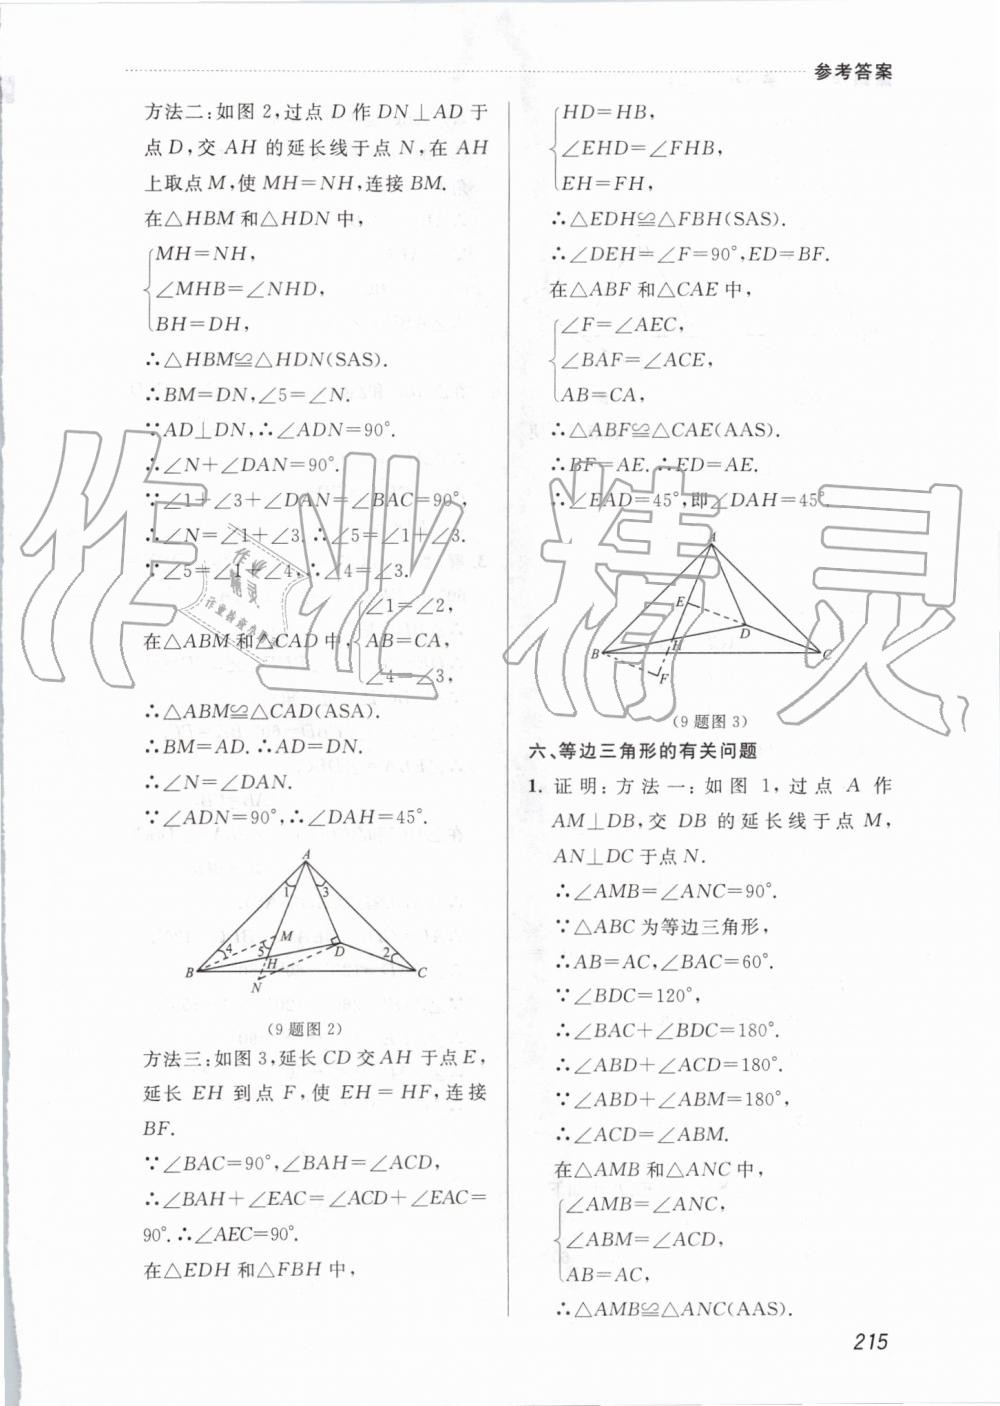 参考答案
方法二:如图2,过点 D 作 DN⊥AD 于
点D,交 AH 的延长线于点 N,在 AH
上取点M,使 MH=NH,连接 BM.
在△HBM 和△HDN 中,
MH=NH,
∠MHB=∠NHD,
BH=DH,
∴△HBM≌△HDN(SAS).
∴BM=DN,∠5=∠N.
∵AD⊥DN,∴∠ADN=90°.
∴∠N+∠DAN=90°.
∵∠1+∠3+∠DAN=∠BAC=90°,
∴∠N=∠1+∠3.∴∠5=∠1+∠3.
∵∠5=∠1+∠4,∴∠4=∠3.
∠1=∠2,
在△ABM 和△CAD 中, AB=CA,
∠4=∠3,
∴△ABM≌△CAD(ASA).
∴BM=AD.∴AD=DN.
∴∠N=∠DAN.
∵∠ADN=90°,∴∠DAH=45°.
A
1 3
M
4 5 D 2
B H C
N
(9题图2)
方法三:如图3,延长 CD 交 AH 于点 E,
延长 EH 到点 F,使 EH=HF,连接
BF.
∵∠BAC=90°,∠BAH=∠ACD,
∴∠BAH+∠EAC=∠ACD+∠EAC=
90°.∴∠AEC=90°.
在△EDH 和△FBH 中,
HD=HB,
∠EHD=∠FHB,
EH=FH,
∴△EDH≌△FBH(SAS).
∴∠DEH=∠F=90°,ED=BF.
在△ABF 和△CAE 中,
∠F=∠AEC,
∠BAF=∠ACE,
AB=CA,
∴△ABF≌△CAE(AAS).
∴BF=AE.∴ED=AE.
∴∠EAD=45°,即∠DAH=45°.
A
E
D
H
B C
F
(9题图3)
六、等边三角形的有关问题
1. 证明:方法一:如图 1,过点 A 作
AM⊥DB,交 DB 的延长线于点 M,
AN⊥DC于点N.
∴∠AMB=∠ANC=90°.
∵△ABC 为等边三角形,
∴AB=AC,∠BAC=60°.
∵∠BDC=120°,
∴∠BAC+∠BDC=180°.
∴∠ABD+∠ACD=180°.
∵∠ABD+∠ABM=180°,
∴∠ACD=∠ABM.
在△AMB 和△ANC 中,
∠AMB=∠ANC,
∠ABM=∠ACD,
AB=AC,
∴△AMB≌△ANC(AAS).
215
作业精灵